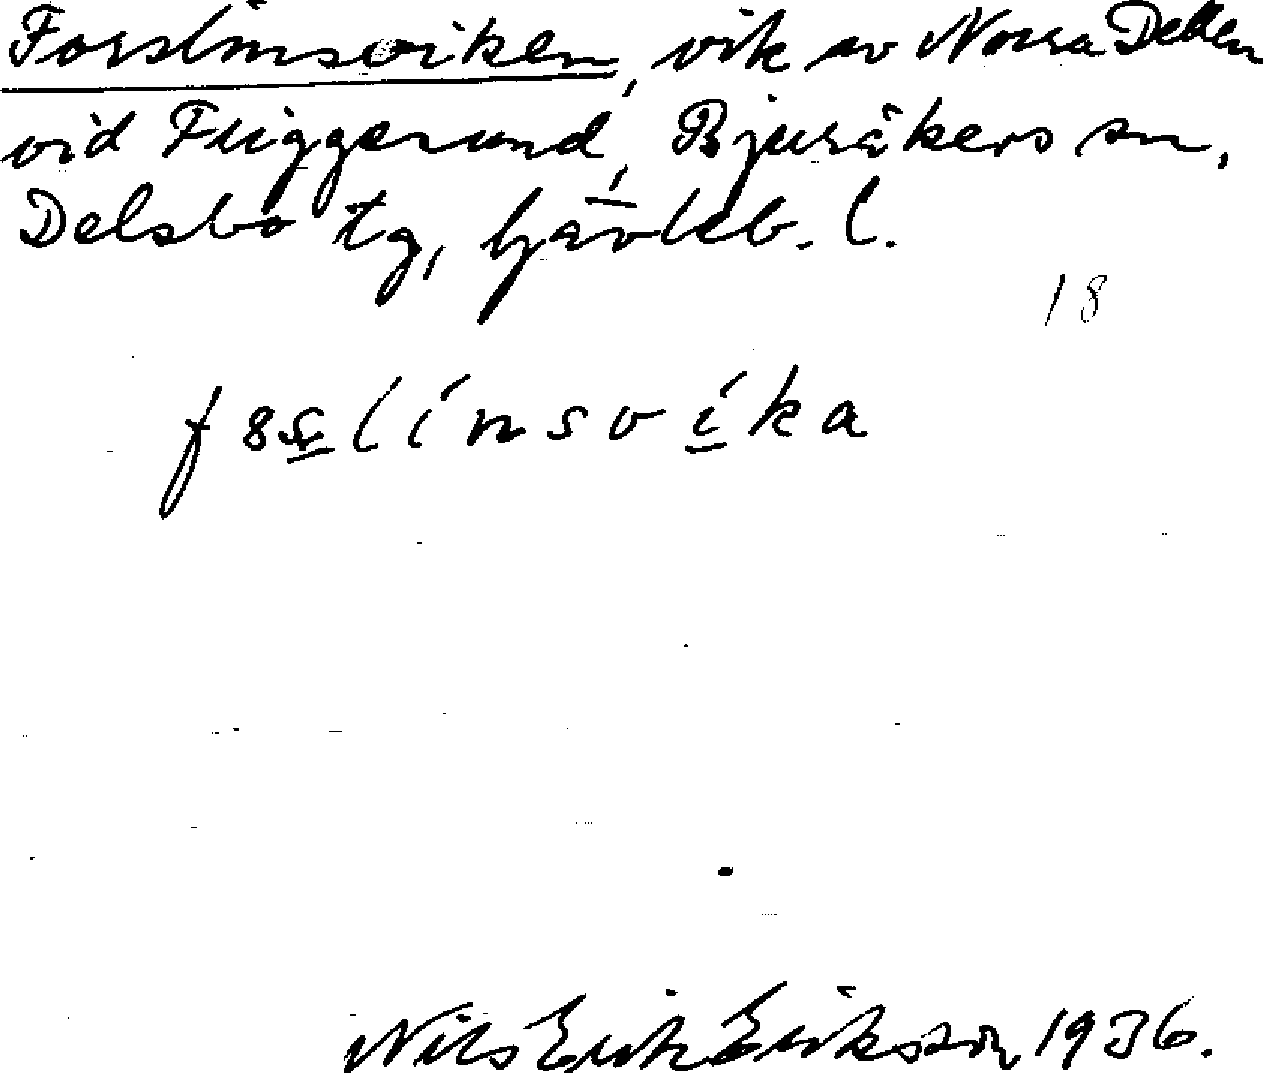 Forslinsviken, vik av Norra Dellen
vid Friggesund, Bjuråkers sn,
Delsbo tg, Gävleb. l.
18
f8s̲línsví̲ka
Nils Erik Eriksson 1936.